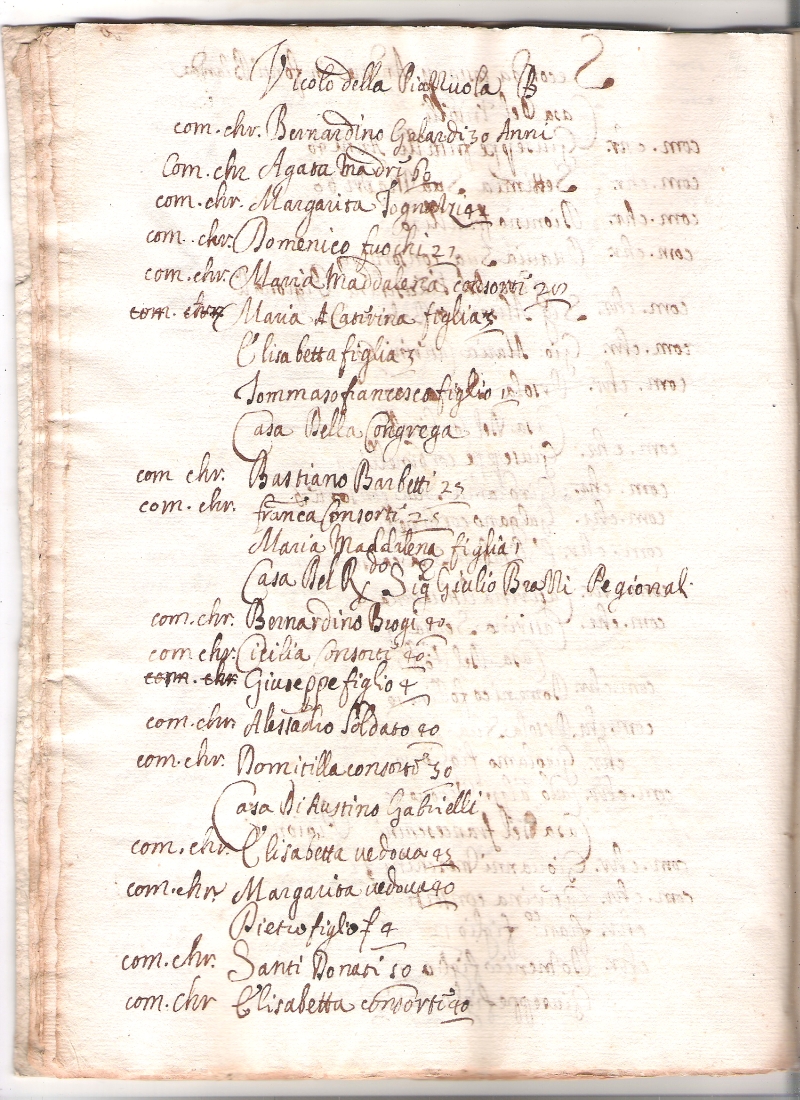 Vicolo della Piaʒʒuola B
com. chr. Bernardino Gherardi 30 Anni
Com. chr Agata Madre 60
com. chr. Margarita
com. chr. Domenico fuochi 27
com. chr. Maria Maddalena consorte 20
com. chr Maria Caterina figlia 5
Elisabetta figlia 3
Tommaso francesco figlio
Casa Della Congrega
com chr. Bastiano Barbetti 25
com. chr. franca Consorte 25
Maria Maddalena figlia 1
Casa Del R.do Sig Giulio
com. chr. Bernardino Biogi 40
com. chr. Cicilia Consorte 40
com. chr Giuseppe figlio 4
com. chr. Alessandro Soldato 40
com. chr. Domitilla consorte 30
Casa Di Austino Gabrielli
com. chr. Elisabetta vedova 45
com. chr Margarita vedova 40
Pietro figlio 4
com. chr. Santi Donati 50
com. chr Elisabetta consorte 40